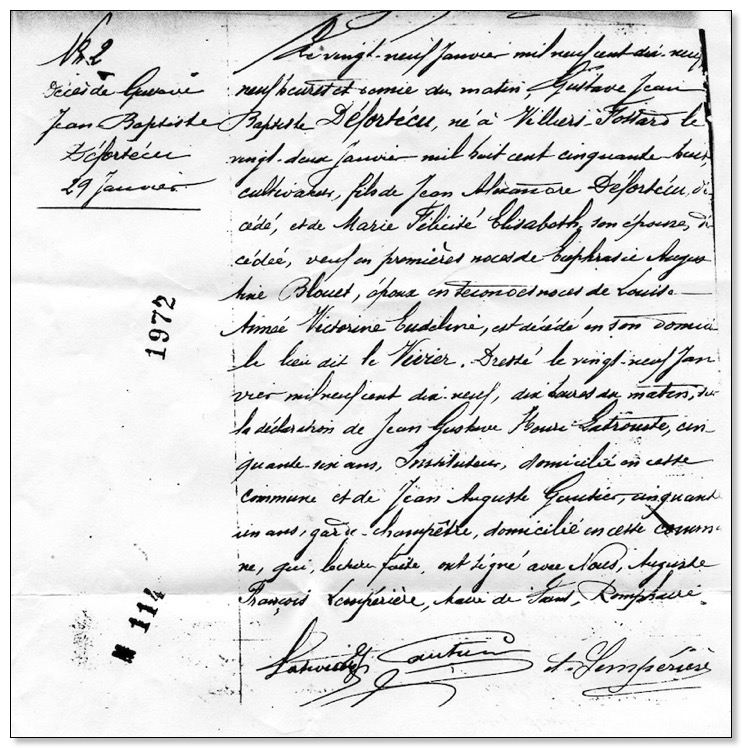 N° 2
Décès de Gustave
Jean Baptiste
Défortécu
29 Janvier
Le vingt-neuf Janvier mil neuf cent dix neuf
neuf heures et demie du matin, Gustave Jean
Baptiste Défortécu, né à Villiers-Fossard le
vingt-deux Janvier mil huit cent cinquante huit,
cultivateur, fils de Jean Alexandre Défortécu, dé
cédé, et de Marie Félicité Elisabeth, son épouse, dé
cédée, veuf en premières noces de Euphrasie Augus
tine Blouet, époux en secondes noces de Louise
Aimée Victorine Eudeline, est décédé en son domici
le lieu dit le Vivier. Dressé le vingt-neuf Jan
vier mil neuf cent dix neuf, dix heures du matin, sur
la déclaration de Jean Gustave Henri Latrouite, cin
quante-six ans, Instituteur, domicilié en cette
commune et de Jean Auguste Gautier, cinquante
un ans, garde-champêtre, domicilié en cette commu
ne, qui, lecture faite, ont signé avec Nous, Auguste
François Lempérière, Maire de Saint, Romphaire.
Gautier et Lempérière
1972
114